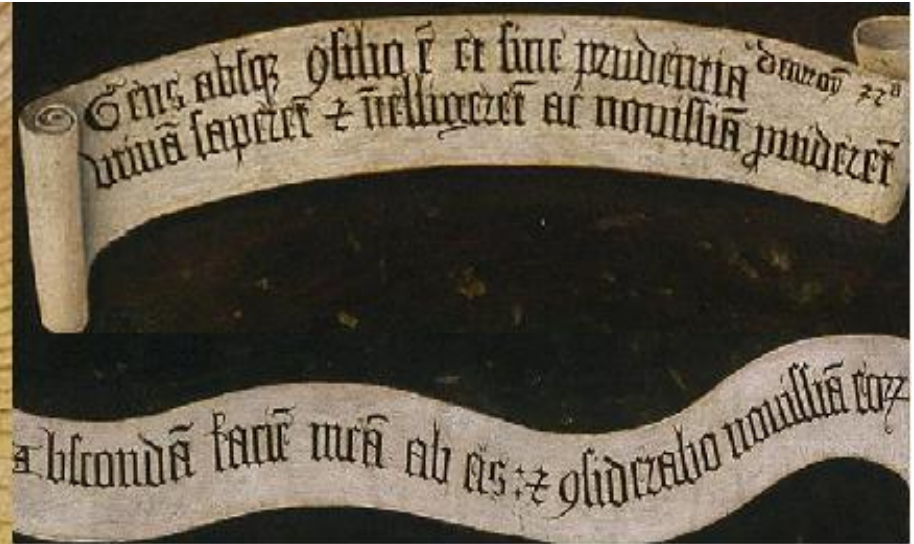 Gens absqꝫ ꝯsilio ē et sine prudentia deuteroñ 32º
utinā saperēt ⁊ īnelligerēt ac nouissīa ꝓuiderēt
Abscondā faciē meā ab eis : ⁊ ꝯsiderabo nouissīa eoꝝ